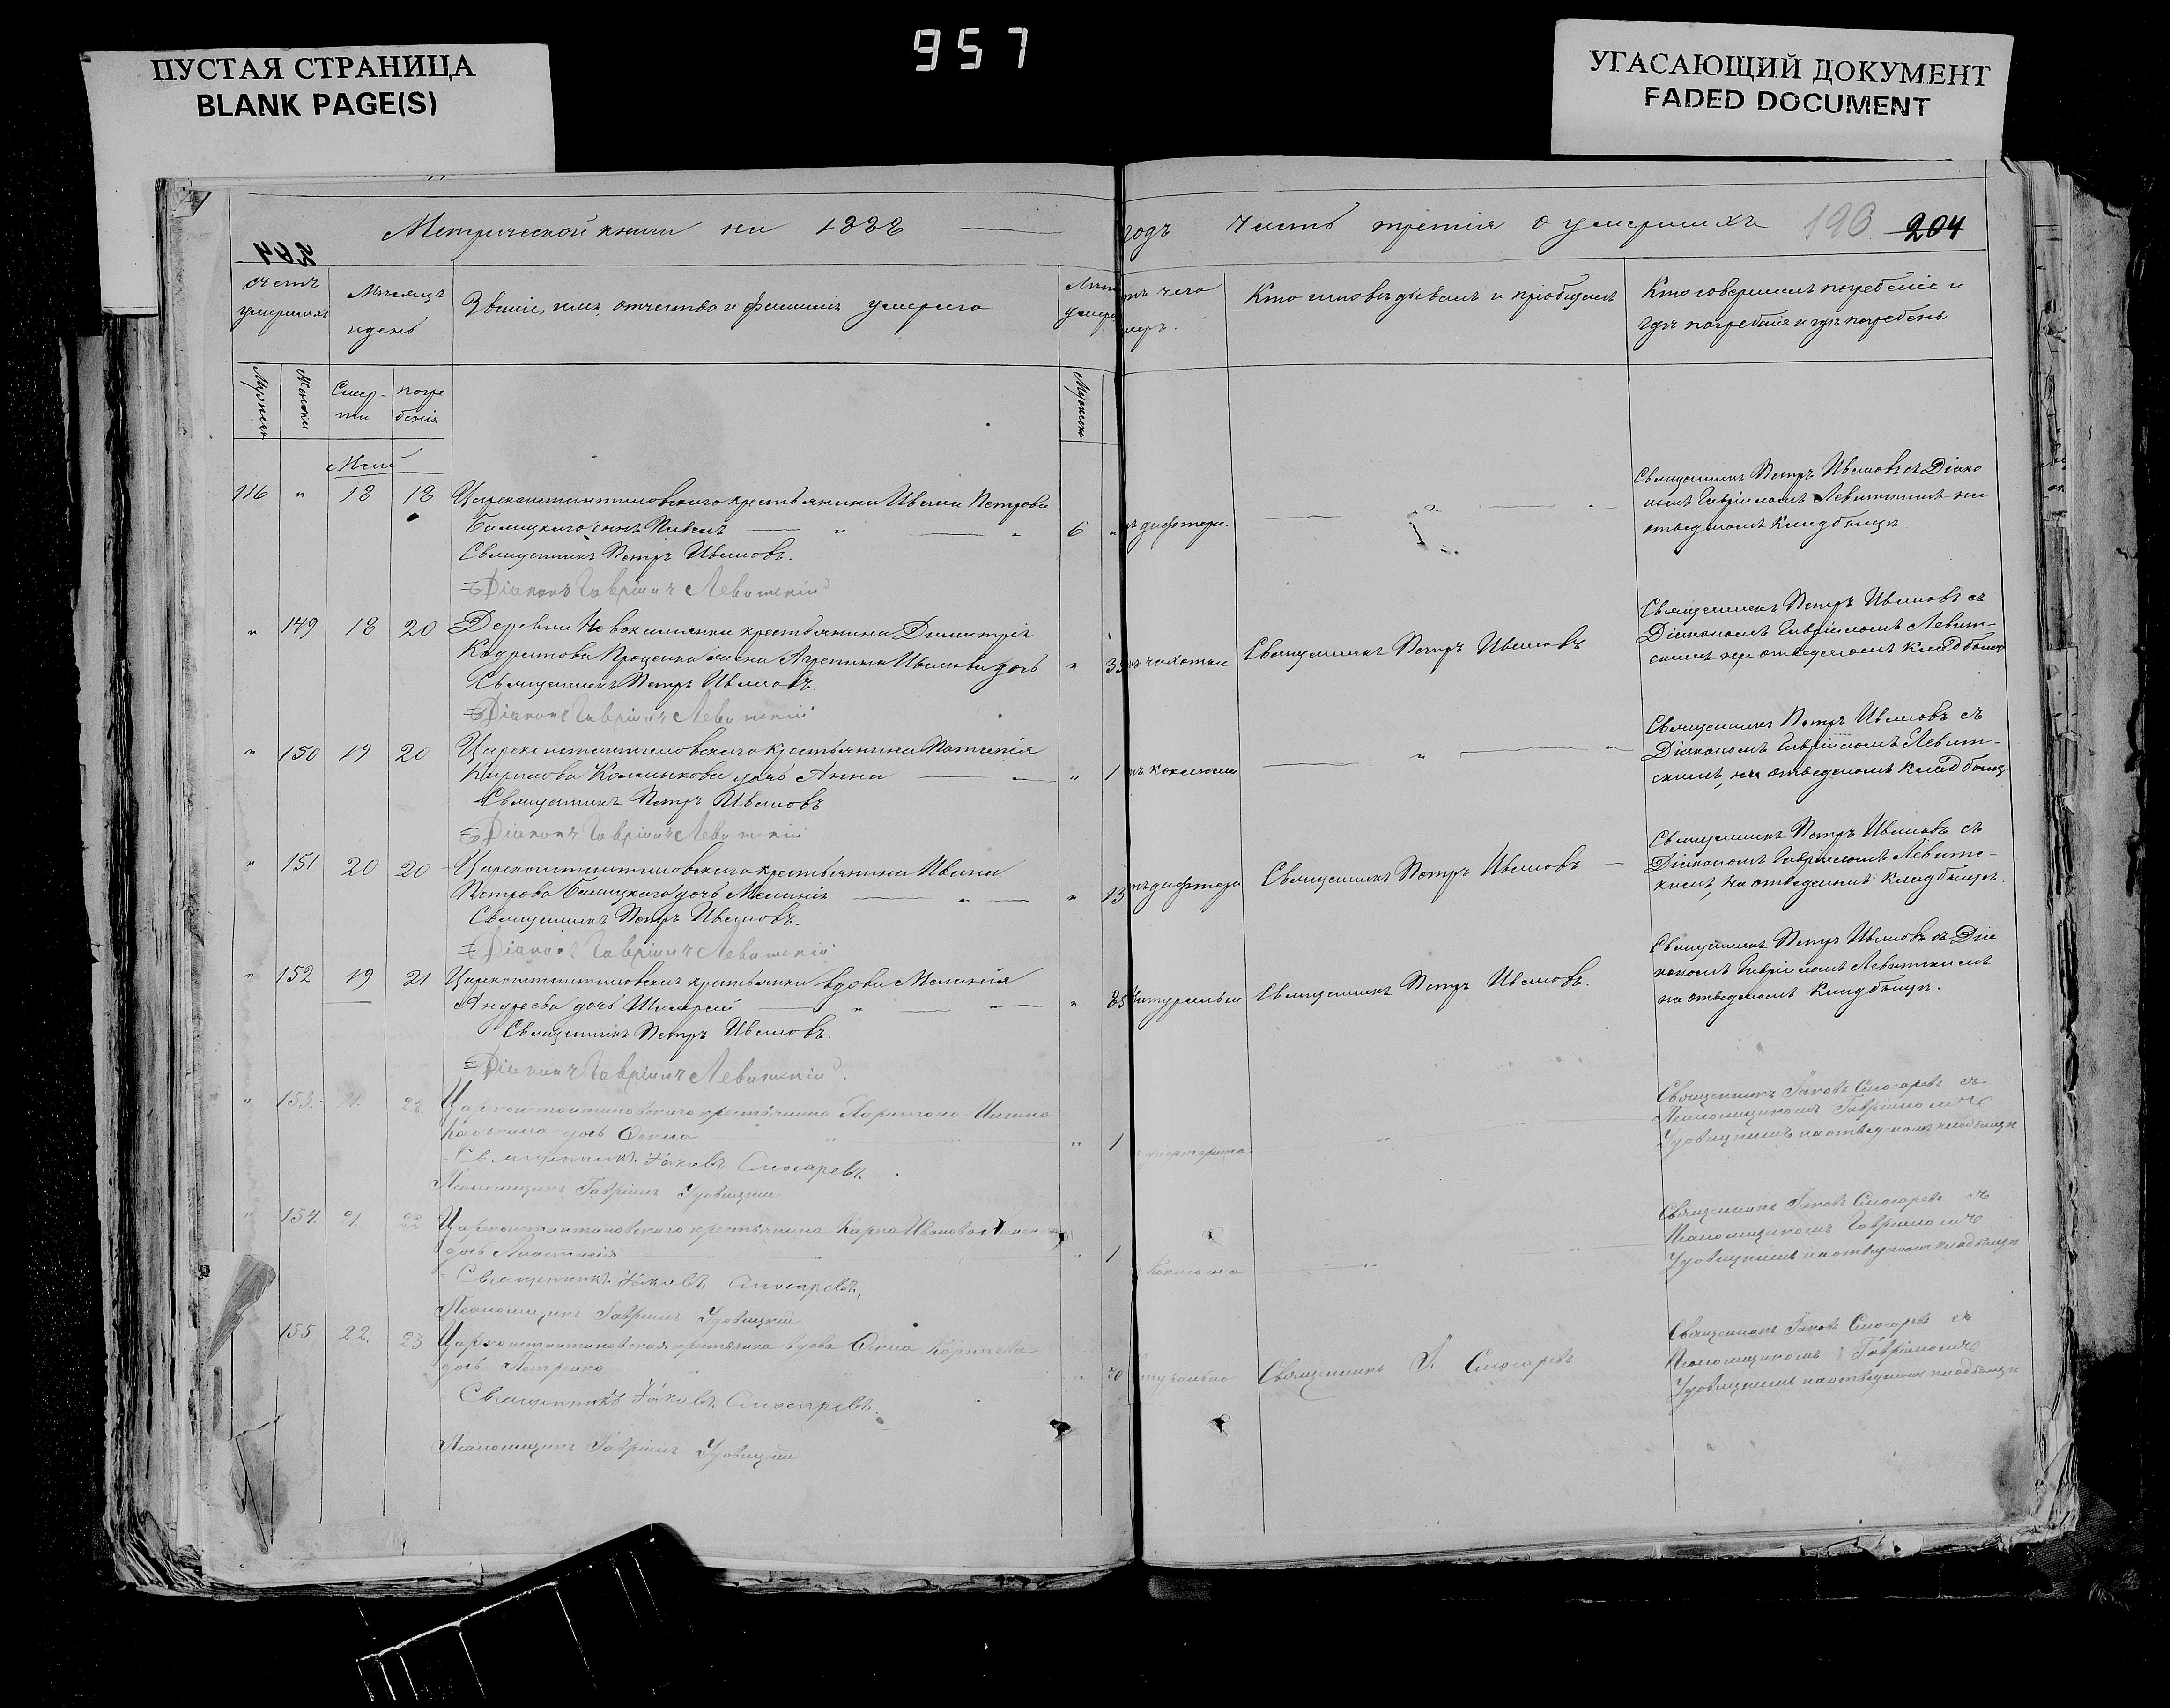 957
ПУСТАЯ СТРАНИЦА
BLANK PAGE(S)
УГАСАЮЩИЙ ДОКУМЕНТ
FADED DOCUMENT
Метрической книги на 1888
годъ часть третія о умершихъ 196 204
204
Счетъ умершихъ
Мѣсяцъ и день
Званіе, имя, отчество и фамилія умершаго
Лѣта
Кто исповѣдывалъ и пріобщалъ
Кто совершалъ погребеніе и
гдѣ погребенъ
Мужеск
Женск
Смер-
ти
Погре
бенія
Мужеск
Май
116 " 18 18 Царсконстантиновскаго крестьянина Ивана Петрова
Балицкаго сынъ Павелъ — " — "
6 " дифтери.
Священникъ Петръ Ивановъ.
Діаконъ Гавріилъ Левитскій
Священникъ Петръ Ивановъ съ Діако
номъ Гавріиломъ Левитскимъ на
отведеномъ кладбищѣ
" 149 18 20 Деревни крестьянина Димитрія
Проценка жена Агрепина Иванова дочь
" 35 чахотки
Священникъ Петръ Ивановъ
Священникъ Петръ Ивановъ.
Діаконъ Гавріилъ Левитскій
Священникъ Петръ Ивановъ съ
Діакономъ Гавріиломъ Левит-
скимъ на отведеномъ кладбищѣ
" 150 19 20 Царсконстантиновскаго крестьянина
Кирилова дочь Анна — " —
" 1 коклюша
Священникъ Петръ Ивановъ
Діаконъ Гавріилъ Левитскій
Священникъ Петръ Ивановъ съ
Діакономъ Гавріиломъ Левит-
скимъ, на отведеномъ кладбищѣ
" 151 20 20 Царсконстантиновскаго крестьянина Ивана
Петрова Балицкаго дочь Меланія — " —
" 13 дифтера
Священникъ Петръ Ивановъ —
Священникъ Петръ Ивановъ.
Діаконъ Гавріилъ Левитскій
Священникъ Петръ Ивановъ съ
Діакономъ Гавріиломъ Левитс-
кимъ, на отведеномъ кладбищѣ.
" 152 19 21 Царсконстантиновская крестьянка вдова Меланія
Андреева дочь — " — " —
" 85 натуральн
Священникъ Петръ Ивановъ.
Священникъ Петръ Ивановъ.
Діаконъ Гавріилъ Левитскій.
Священникъ Петръ Ивановъ съ Діа
кономъ Гавріиломъ Левитскимъ
на отведеномъ кладбищѣ.
" 153. 21. 22. Царсконстантиновскаго крестьянина Харитона
дочь
" 1 дифтерита
Священникъ Іаковъ Слюсаревъ.
Псаломщикъ Гавріилъ Удовицкій
Священникъ Іаковъ Слюсаревъ съ
Псаломщикомъ Гавріиломъ
Удовицкимъ на отведеномъ кладбищѣ
" 154. 21. 22 Царсконстантиновскаго крестьянина Карпа Иванова
дочь Анастасія
" 1 Коклюша
Священникъ Іаковъ Слюсаревъ,
Псаломщикъ Гавріилъ Удовицкій
Священникъ Іаковъ Слюсаревъ съ
Псаломщикомъ Гавріиломъ
Удовицкимъ на отведеномъ кладбищѣ
155 22. 23 Царсконстантиновская крестьянка вдова
дочь Петренко
" 70
Священникъ І. Слюсаревъ
Священникъ Іаковъ Слюсаревъ.
Псаломщикъ Гавріилъ Удовицкій
Священникъ Іаковъ Слюсаревъ съ
Псаломщикомъ Гавріиломъ
Удовицкимъ на отведеномъ кладбищѣ